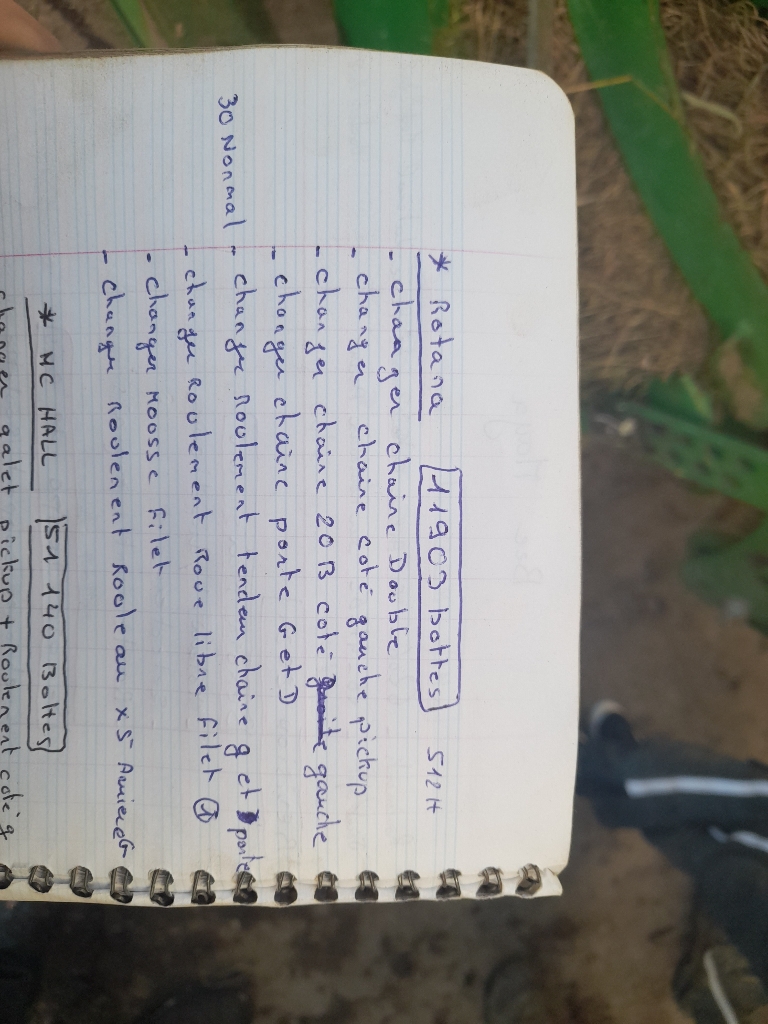 * Rotana 11903 bottes 512 H
- changer chaine Double
- changer chaine coté gauche pickup
- changer chaine 20 B coté gauche
- changer chaine porte G et D
30 Normal - changer Roulement tendeur chaine g et D porte
- changer Roulement Roue libre filet ①
- changer Moosse filet
- changer Roulement Rouleau x5
* MC HALL 51 140 Bottes
changer galet pickup + Roulement coté g